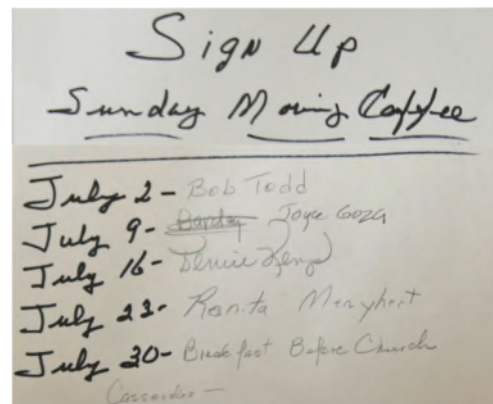 Sign Up
Sunday Moring Coffee
July 2 - Bob Todd
July 9 - Joyce Goza
July 16 - Denise Kemp
July 23 - Ronita Menyhert
July 30 - Breakfast Before Church